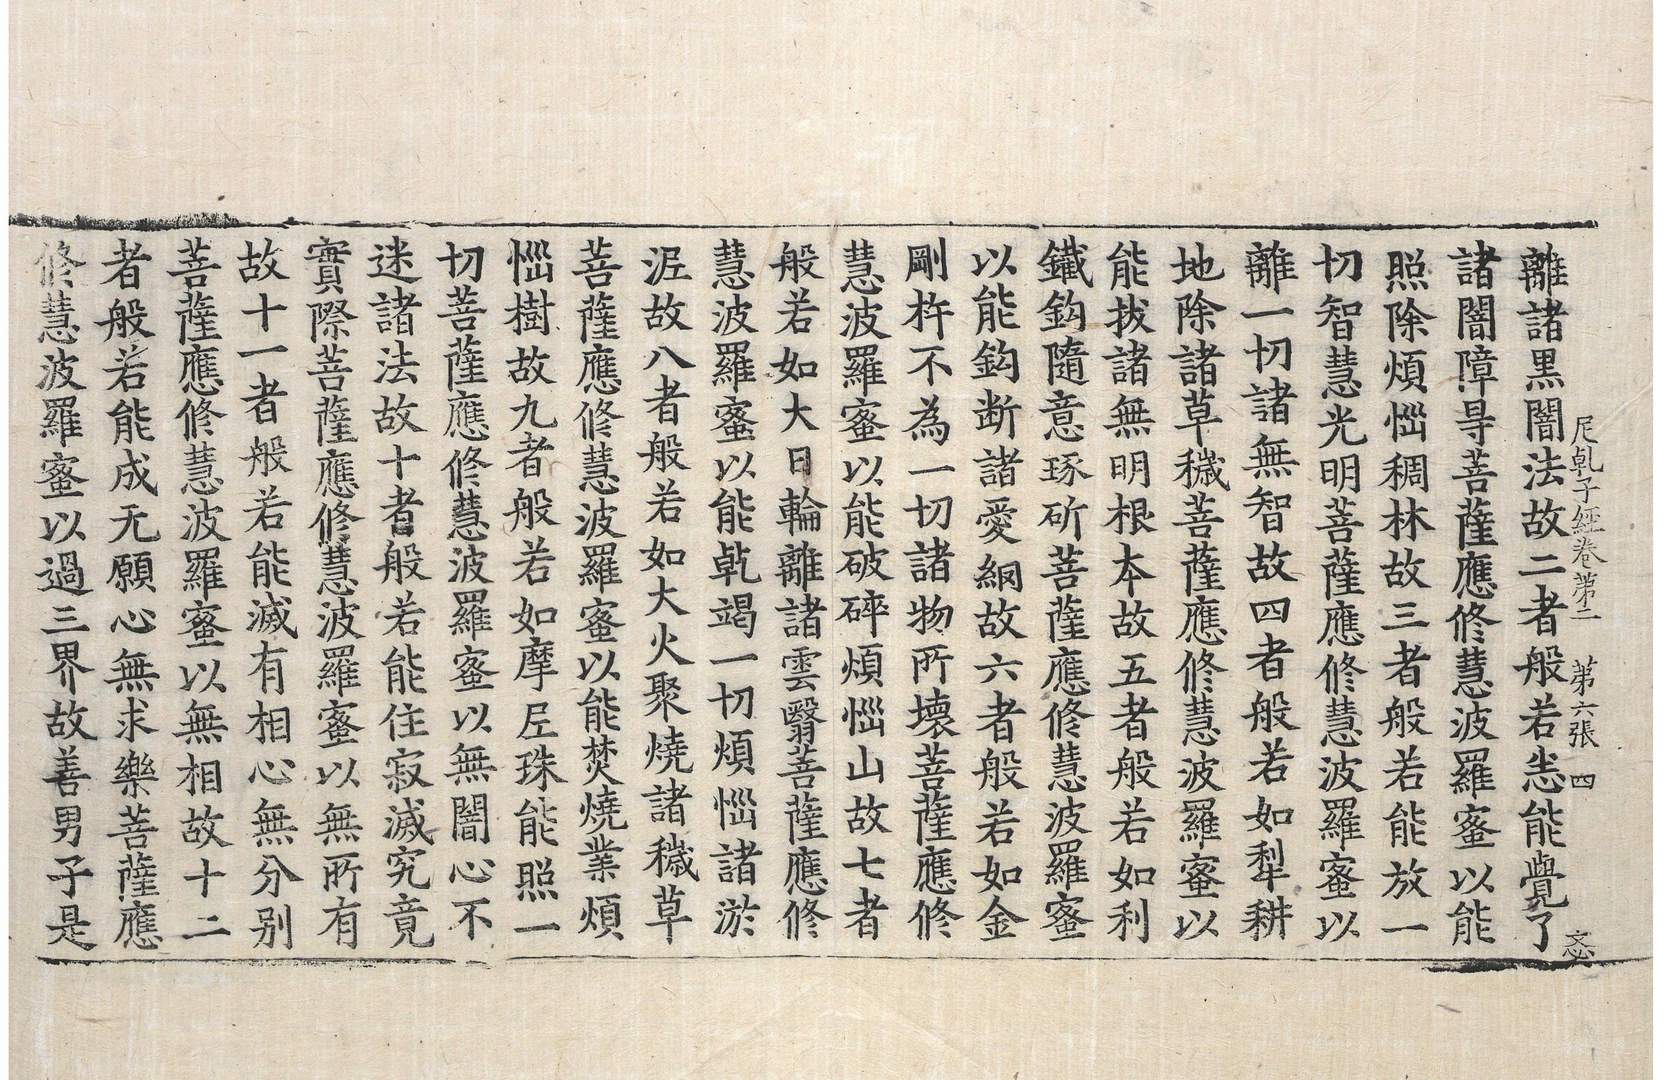 尼乹子經卷第二　第六張　四　宓
離諸黑闇法故二者般若悉能覺了
諸闇障㝵菩薩應修慧波羅蜜以能
照除煩惱稠林故三者般若能放一
切智慧光明菩薩應修慧波羅蜜以
離一切諸無智故四者般若如犁耕
地除諸草穢菩薩應修慧波羅蜜以
能拔諸無明根本故五者般若如利
鐵鈎隨意琢斫菩薩應修慧波羅蜜
以能鈎断諸愛網故六者般若如金
剛杵不為一切諸物所壞菩薩應修
慧波羅蜜以能破碎煩惱山故七者
般若如大日輪離諸雲翳菩薩應修
慧波羅蜜以能乹竭一切煩惱諸淤
泥故八者般若如大火聚燒諸穢草
菩薩應修慧波羅蜜以能焚燒業煩
惱樹故九者般若如摩尼珠能照一
切菩薩應修慧波羅蜜以無闇心不
迷諸法故十者般若能住寂滅究竟
實際菩薩應修慧波羅蜜以無所有
故十一者般若能滅有相心無分别
菩薩應修慧波羅蜜以無相故十二
者般若能成无願心無求樂菩薩應
修慧波羅蜜以過三界故善男子是